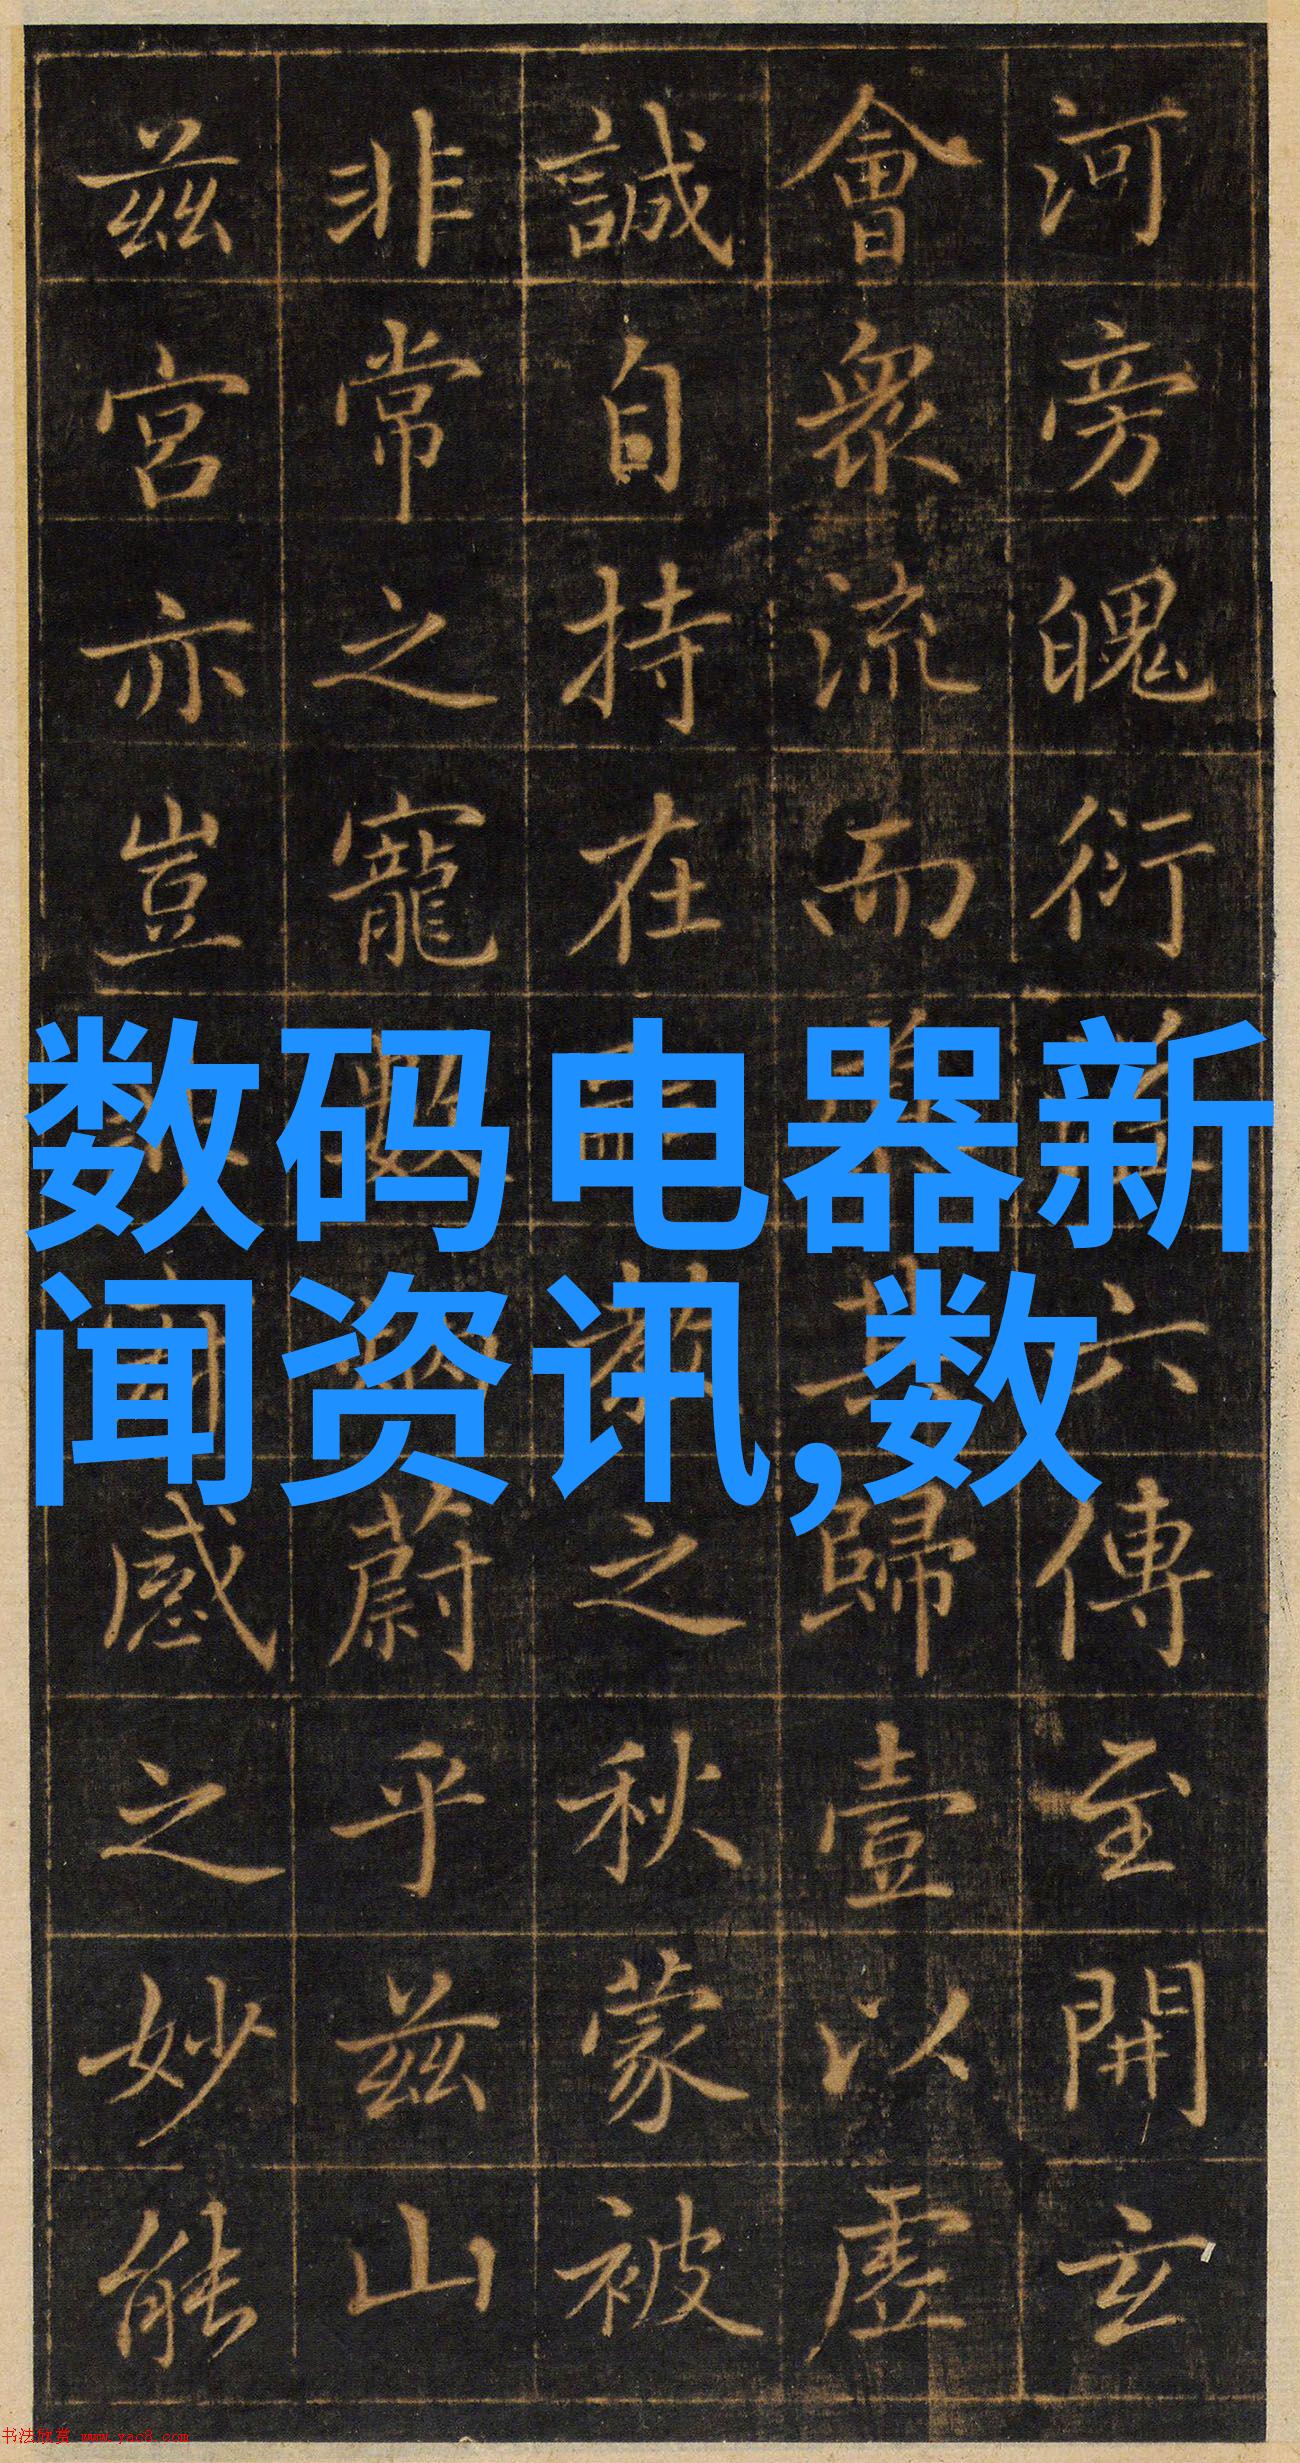 河旁魄衍六傳至開玄
會衆流而其歸壹以虛
誠自持在之秋蒙被
非常之寵蔚乎兹山
兹宮亦豈感之妙能
数码电器新
闻资讯,数
书法欣赏 www.yac8.com